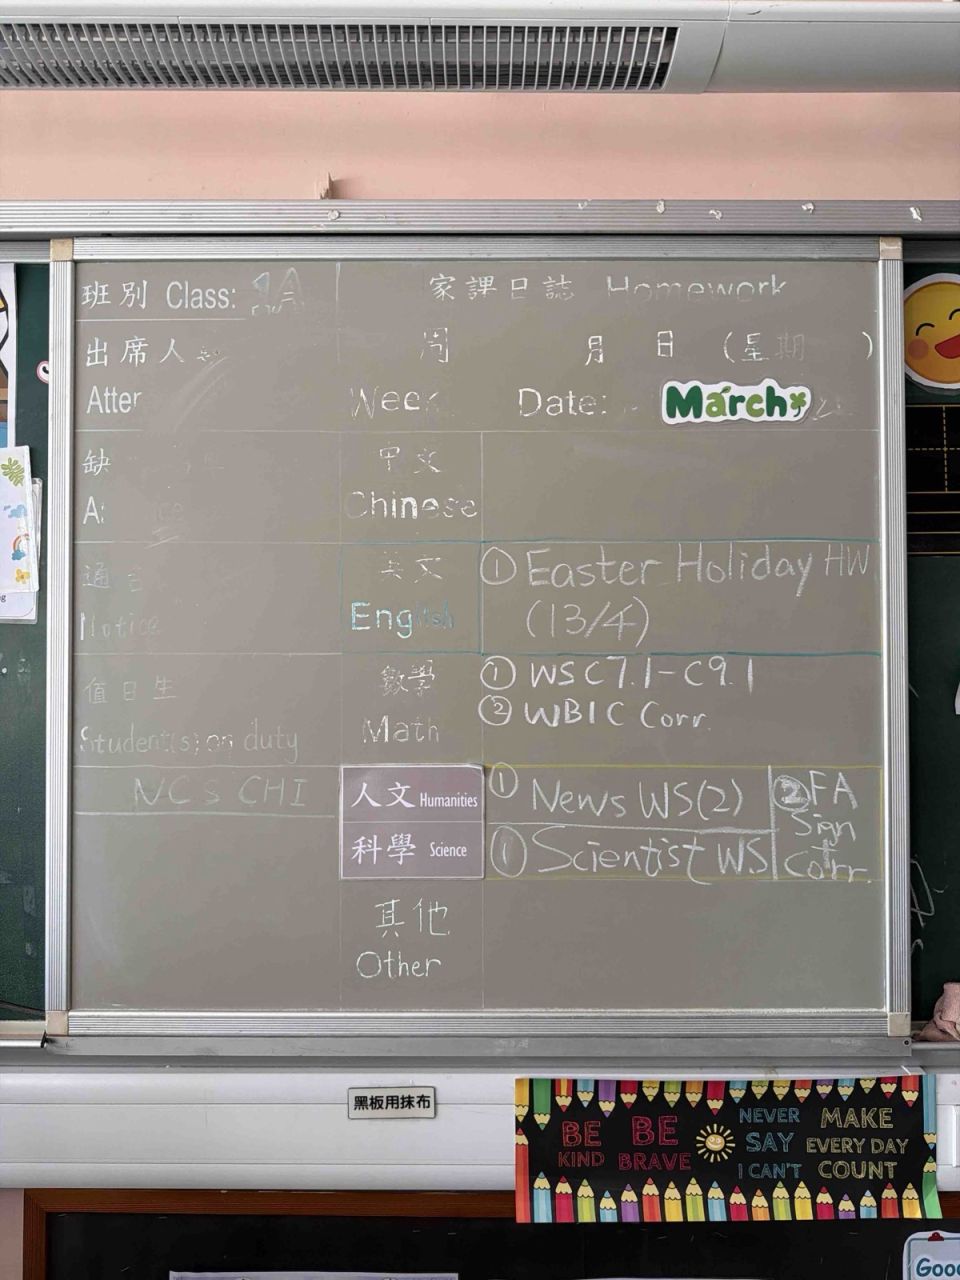 班別 Class:
家課日誌 Homework
出席人
周 月 日 (星期 )
Atter
Week Date: March
缺
中文
Chinese
通
Notice
英文
English
① Easter Holiday HW
(13/4)
值日生
Student(s) on duty
數學
Math
① WS C7.1-C9.1
② WB1C Corr.
NCs CHI
人文 Humanities
① News WS(2)
② FA
Sign
Corr.
科學 Science
① Scientist WS
其他
Other
黑板用抹布
BE
KIND
BE
BRAVE
NEVER
SAY
I CAN'T
MAKE
EVERY DAY
COUNT